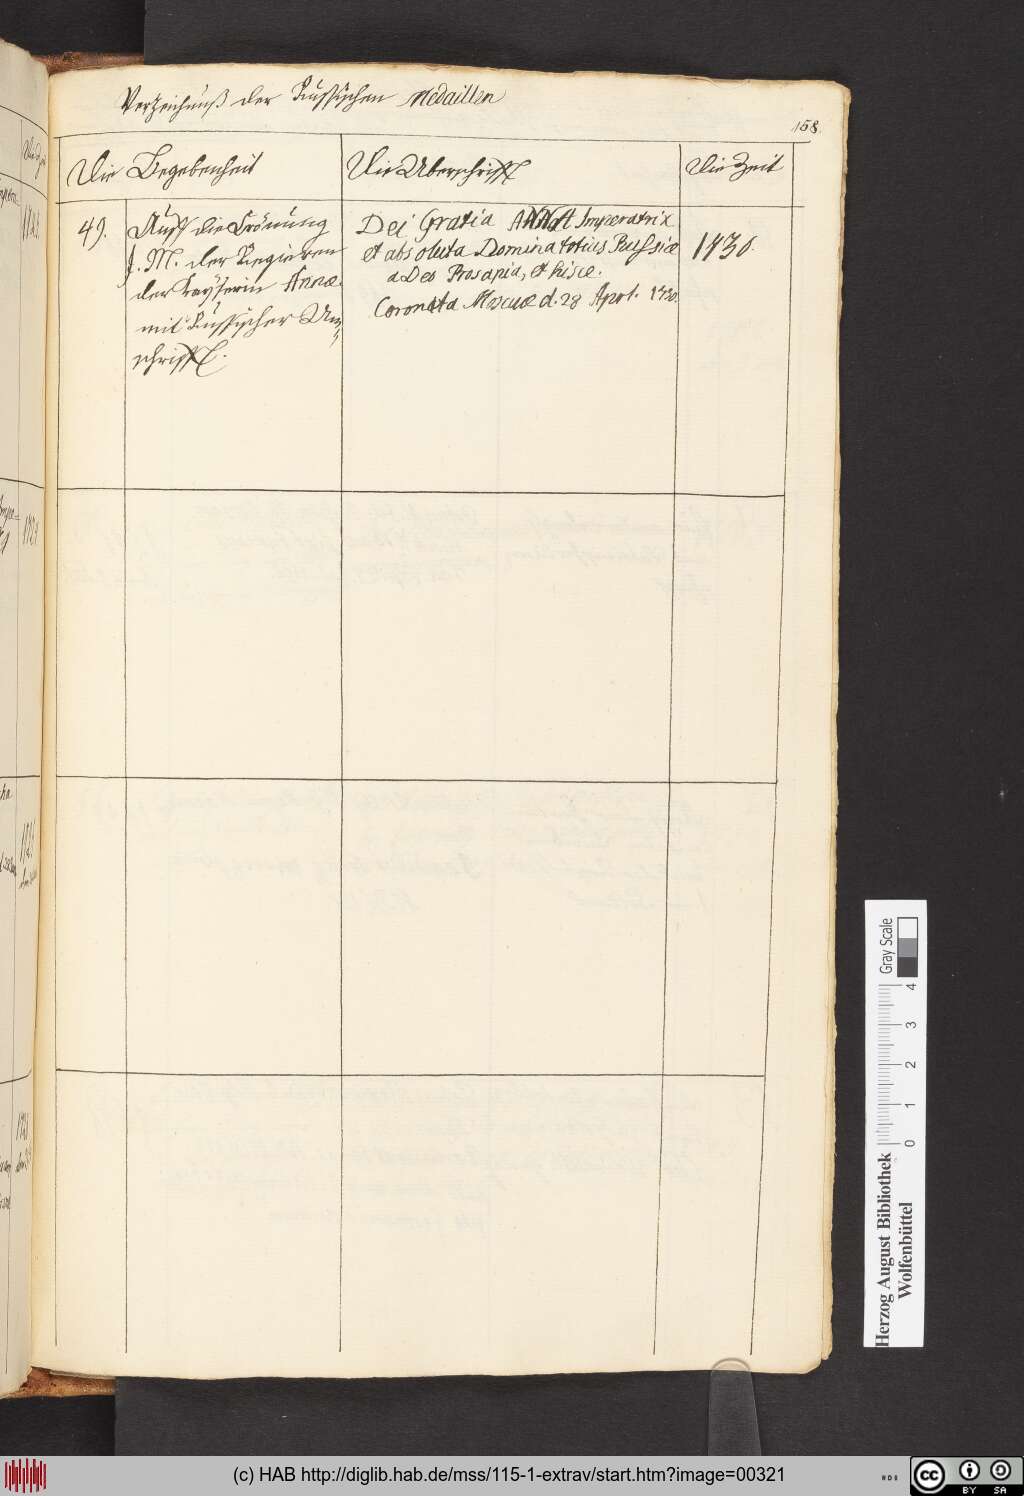 Verzeichnüß der Russischen Medaillen
158
Die Begebenheit
Die Uberschrifft
Die Zeit
49.
Auff die Crönung
J. M. der Regieren
der Kayserin Annæ
mit Russischer Um
schrifft.
Dei Gratia Anna Imperatrix
et absoluta Domina totius Russiæ
a Deo Prosapia, et hisce.
Coronata Moscuæ d. 28 Aprl. 1730.
1730.
Herzog August Bibliothek
Wolfenbüttel
0 1 2 3 4
Gray Scale
(c) HAB http://diglib.hab.de/mss/115-1-extrav/start.htm?image=00321
cc
BY SA